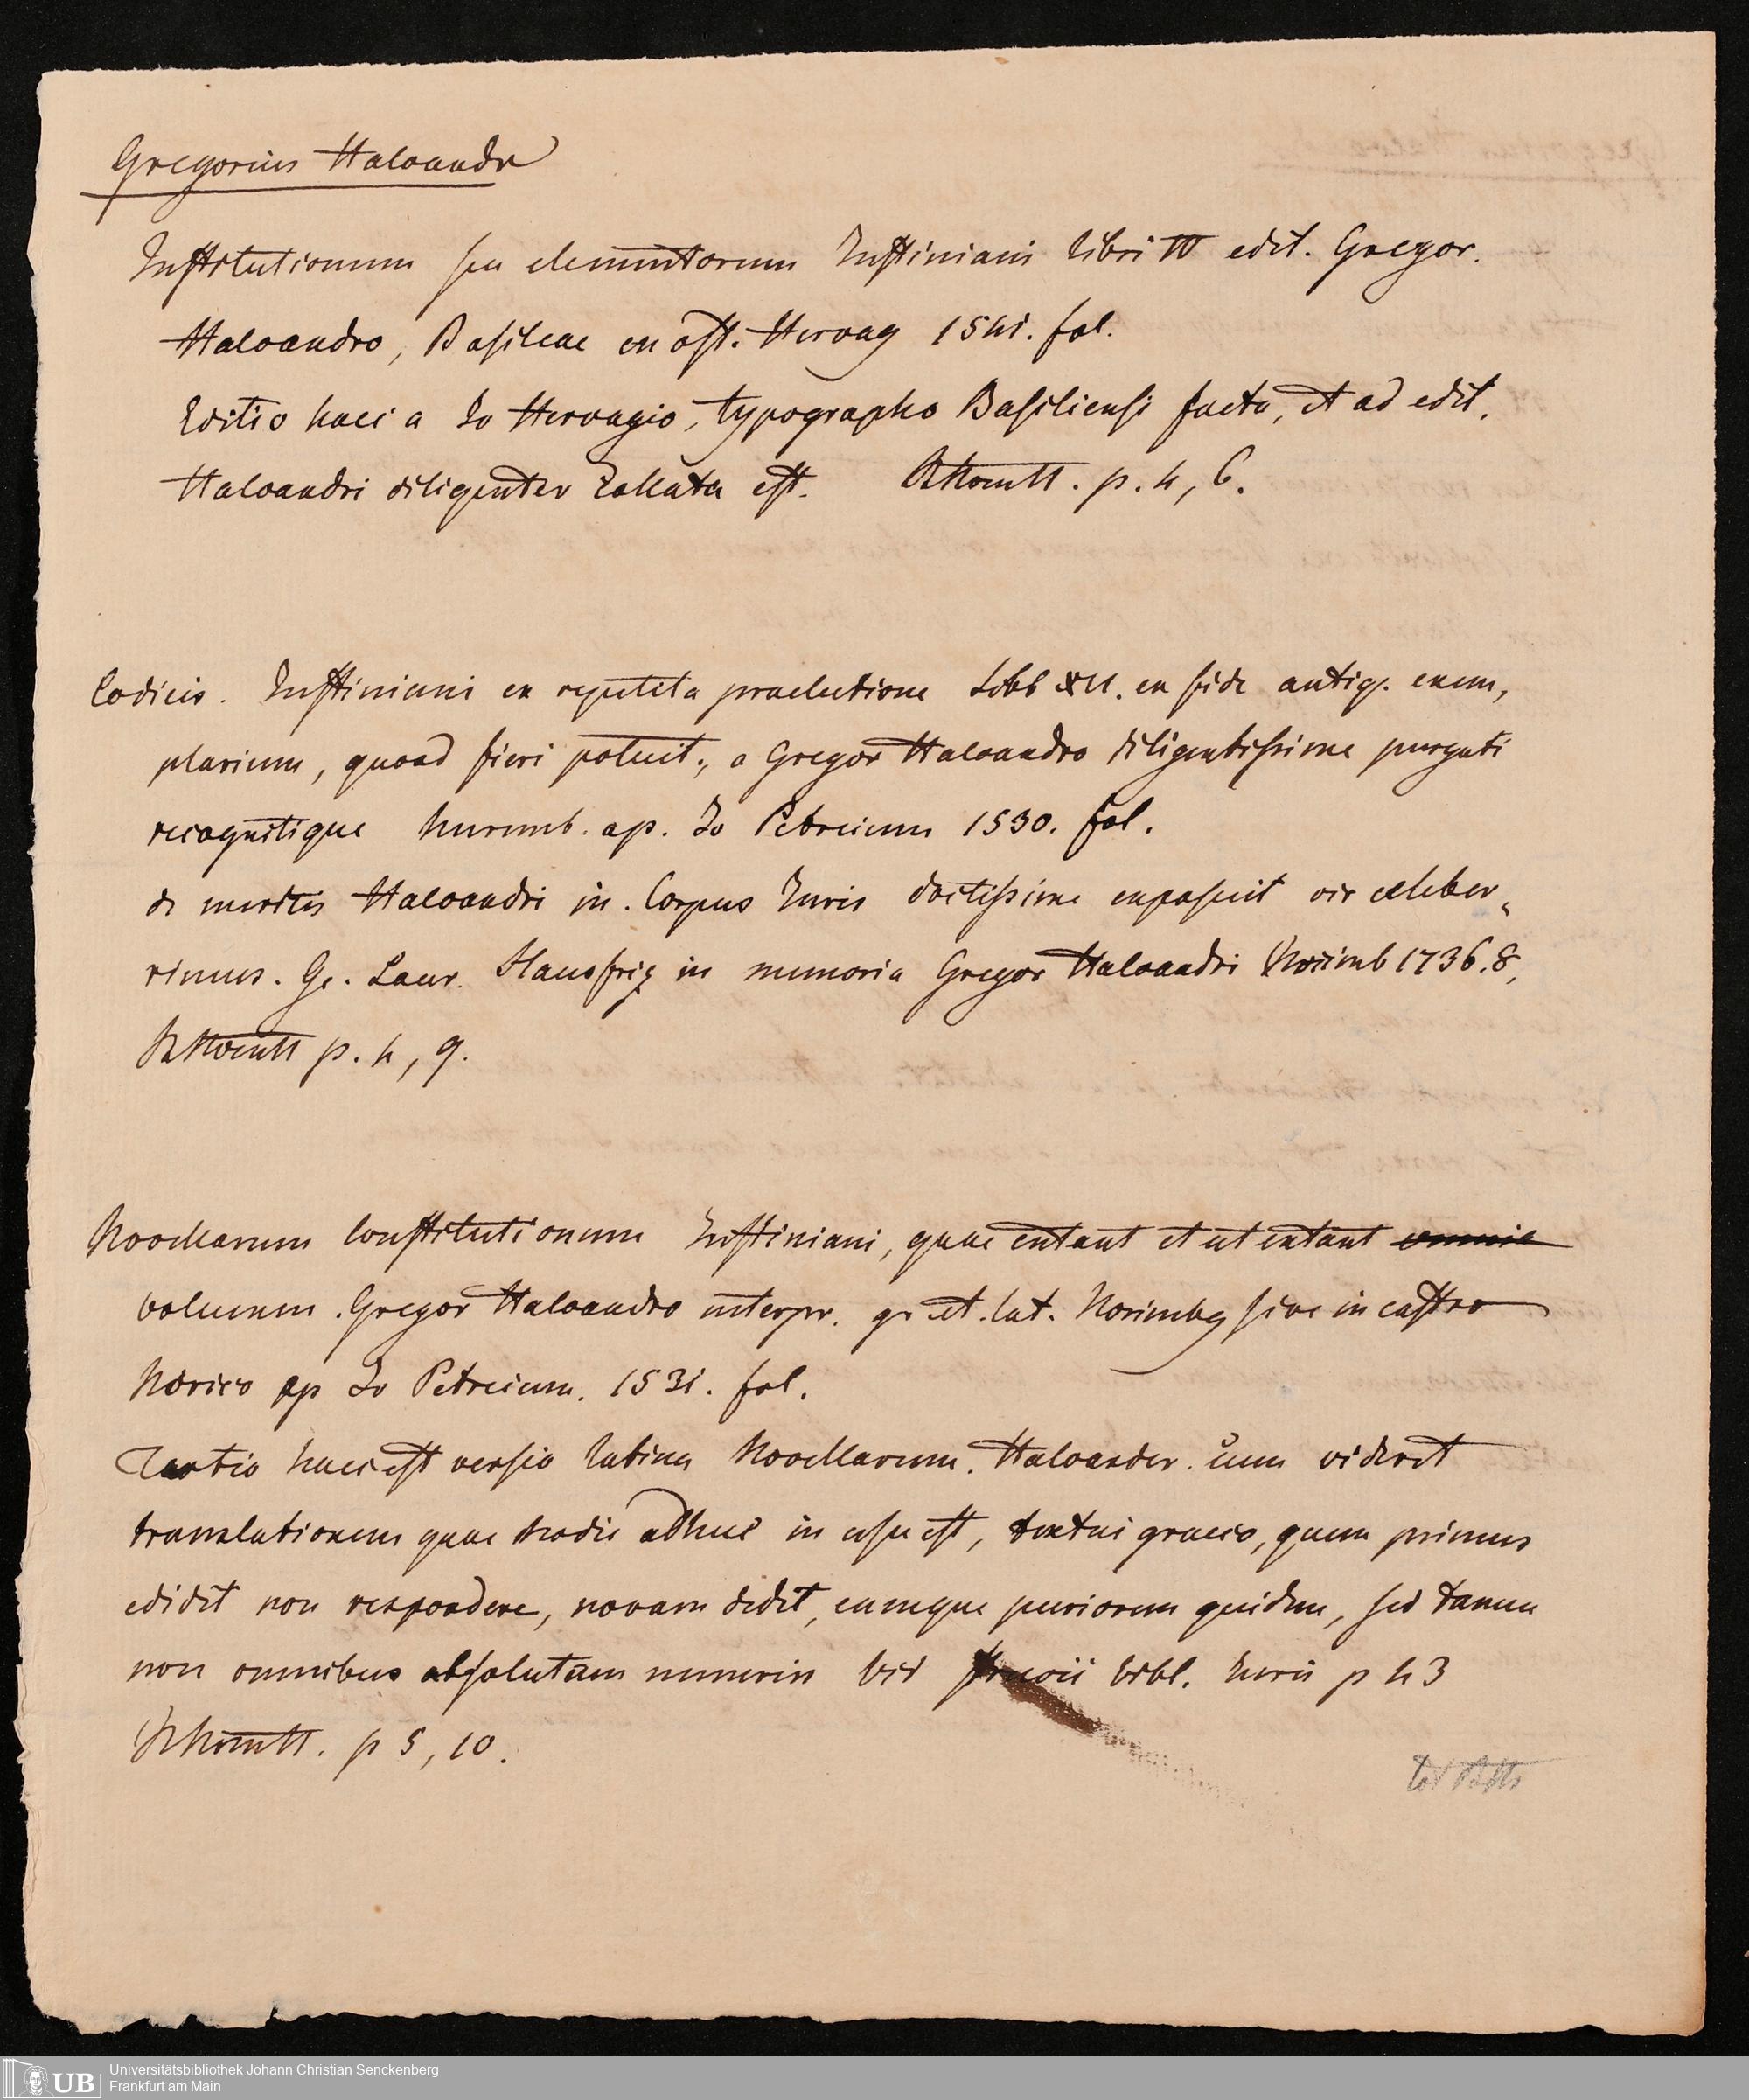 Gregorius Haloandr
Institutionum seu elementorum Iustiniani libri IV edit. Gregor.
Haloandro, Basileae ex off. Hervag 1541. fol.
Editio haec a Io Hervagio, typographo Basiliensi facta, et ad edit.
Haloandri diligenter collata est. p. 4, 6.
Codicis. Iustiniani ex repetita praelectione Libb XII. ex fide antiq. exem,
plarium, quoad fieri potuit, a Gregor Haloandro diligentissime purgati
recognitique Nuremb. ap. Io Petreium 1530. fol.
de meritis Haloandri in. Corpus Iuris doctissime exposuit vir celeber„
rimus. Ge. Laur. in memoria Gregor Haloandri Norimb 1736. 8,
p. 4, 9.
Novellarum Constitutionum Iustiniani, quae extant et ut extant omnia
volumen. Gregor Haloandro interpr. gr et. lat. Norimbg sive in castro
Norico ap Io Petreium. 1531. fol.
Tertio haec est versio latina Novellarum. Haloander. cum videret
translationem quae hodie adhuc in usu est, textui graeco, quem primus
edidit non respondere, novam dedit, eamque puriorem quidem, sed tamen
non omnibus absolutam numeris vid Struvii bibl. Iuris p 43
p 5, 10.
UB Universitätsbibliothek Johann Christian Senckenberg
Frankfurt am Main